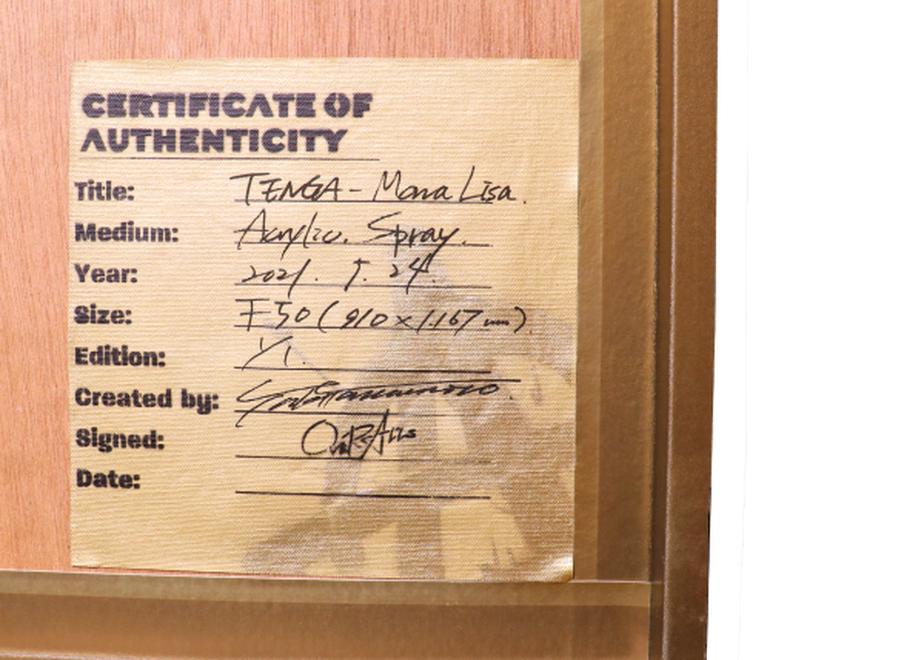 CERTIFICATE OF
AUTHENTICITY
Title: TENGA - Mona Lisa.
Medium: Acrylic. Spray.
Year: 2021. 5. 24.
Size: F50 (910 x 1.167 mm)
Edition: 1/1.
Created by:
Signed:
Date: